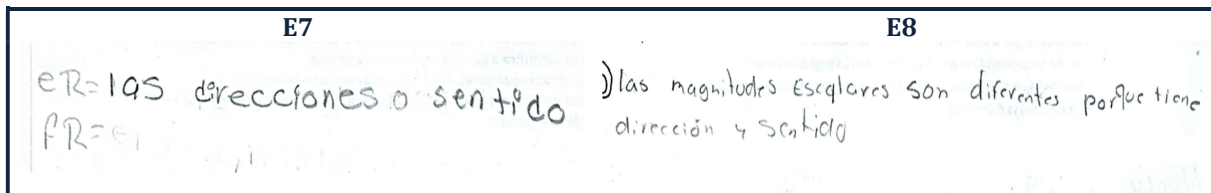 E7
E8
eR= las direcciones o sentido
fR= e
) las magnitudes Escalares son diferentes porque tiene
dirección y sentido